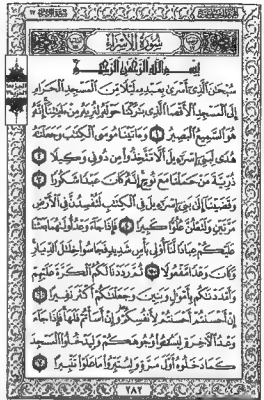 سُورَةُ الإِسْرَاءِ
بِسْمِ ٱللَّهِ ٱلرَّحْمَٰنِ ٱلرَّحِيمِ
سُبْحَٰنَ ٱلَّذِىٓ أَسْرَىٰ بِعَبْدِهِۦ لَيْلًا مِّنَ ٱلْمَسْجِدِ ٱلْحَرَامِ
إِلَى ٱلْمَسْجِدِ ٱلْأَقْصَا ٱلَّذِى بَٰرَكْنَا حَوْلَهُۥ لِنُرِيَهُۥ مِنْ ءَايَٰتِنَآ إِنَّهُۥ
هُوَ ٱلسَّمِيعُ ٱلْبَصِيرُ ١ وَءَاتَيْنَا مُوسَى ٱلْكِتَٰبَ وَجَعَلْنَٰهُ
هُدًى لِّبَنِىٓ إِسْرَٰٓءِيلَ أَلَّا تَتَّخِذُوا۟ مِن دُونِى وَكِيلًا ٢
ذُرِّيَّةَ مَنْ حَمَلْنَا مَعَ نُوحٍ إِنَّهُۥ كَانَ عَبْدًا شَكُورًا ٣
وَقَضَيْنَآ إِلَىٰ بَنِىٓ إِسْرَٰٓءِيلَ فِى ٱلْكِتَٰبِ لَتُفْسِدُنَّ فِى ٱلْأَرْضِ
مَرَّتَيْنِ وَلَتَعْلُنَّ عُلُوًّا كَبِيرًا ٤ فَإِذَا جَآءَ وَعْدُ أُولَىٰهُمَا بَعَثْنَا
عَلَيْكُمْ عِبَادًا لَّنَآ أُو۟لِى بَأْسٍ شَدِيدٍ فَجَاسُوا۟ خِلَٰلَ ٱلدِّيَارِ
وَكَانَ وَعْدًا مَّفْعُولًا ٥ ثُمَّ رَدَدْنَا لَكُمُ ٱلْكَرَّةَ عَلَيْهِمْ
وَأَمْدَدْنَٰكُم بِأَمْوَٰلٍ وَبَنِينَ وَجَعَلْنَٰكُمْ أَكْثَرَ نَفِيرًا ٦
إِنْ أَحْسَنتُمْ أَحْسَنتُمْ لِأَنفُسِكُمْ وَإِنْ أَسَأْتُمْ فَلَهَا فَإِذَا جَآءَ
وَعْدُ ٱلْءَاخِرَةِ لِيَسُۥٓـُٔوا۟ وُجُوهَكُمْ وَلِيَدْخُلُوا۟ ٱلْمَسْجِدَ
كَمَا دَخَلُوهُ أَوَّلَ مَرَّةٍ وَلِيُتَبِّرُوا۟ مَا عَلَوْا۟ تَتْبِيرًا ٧
٢٨٢